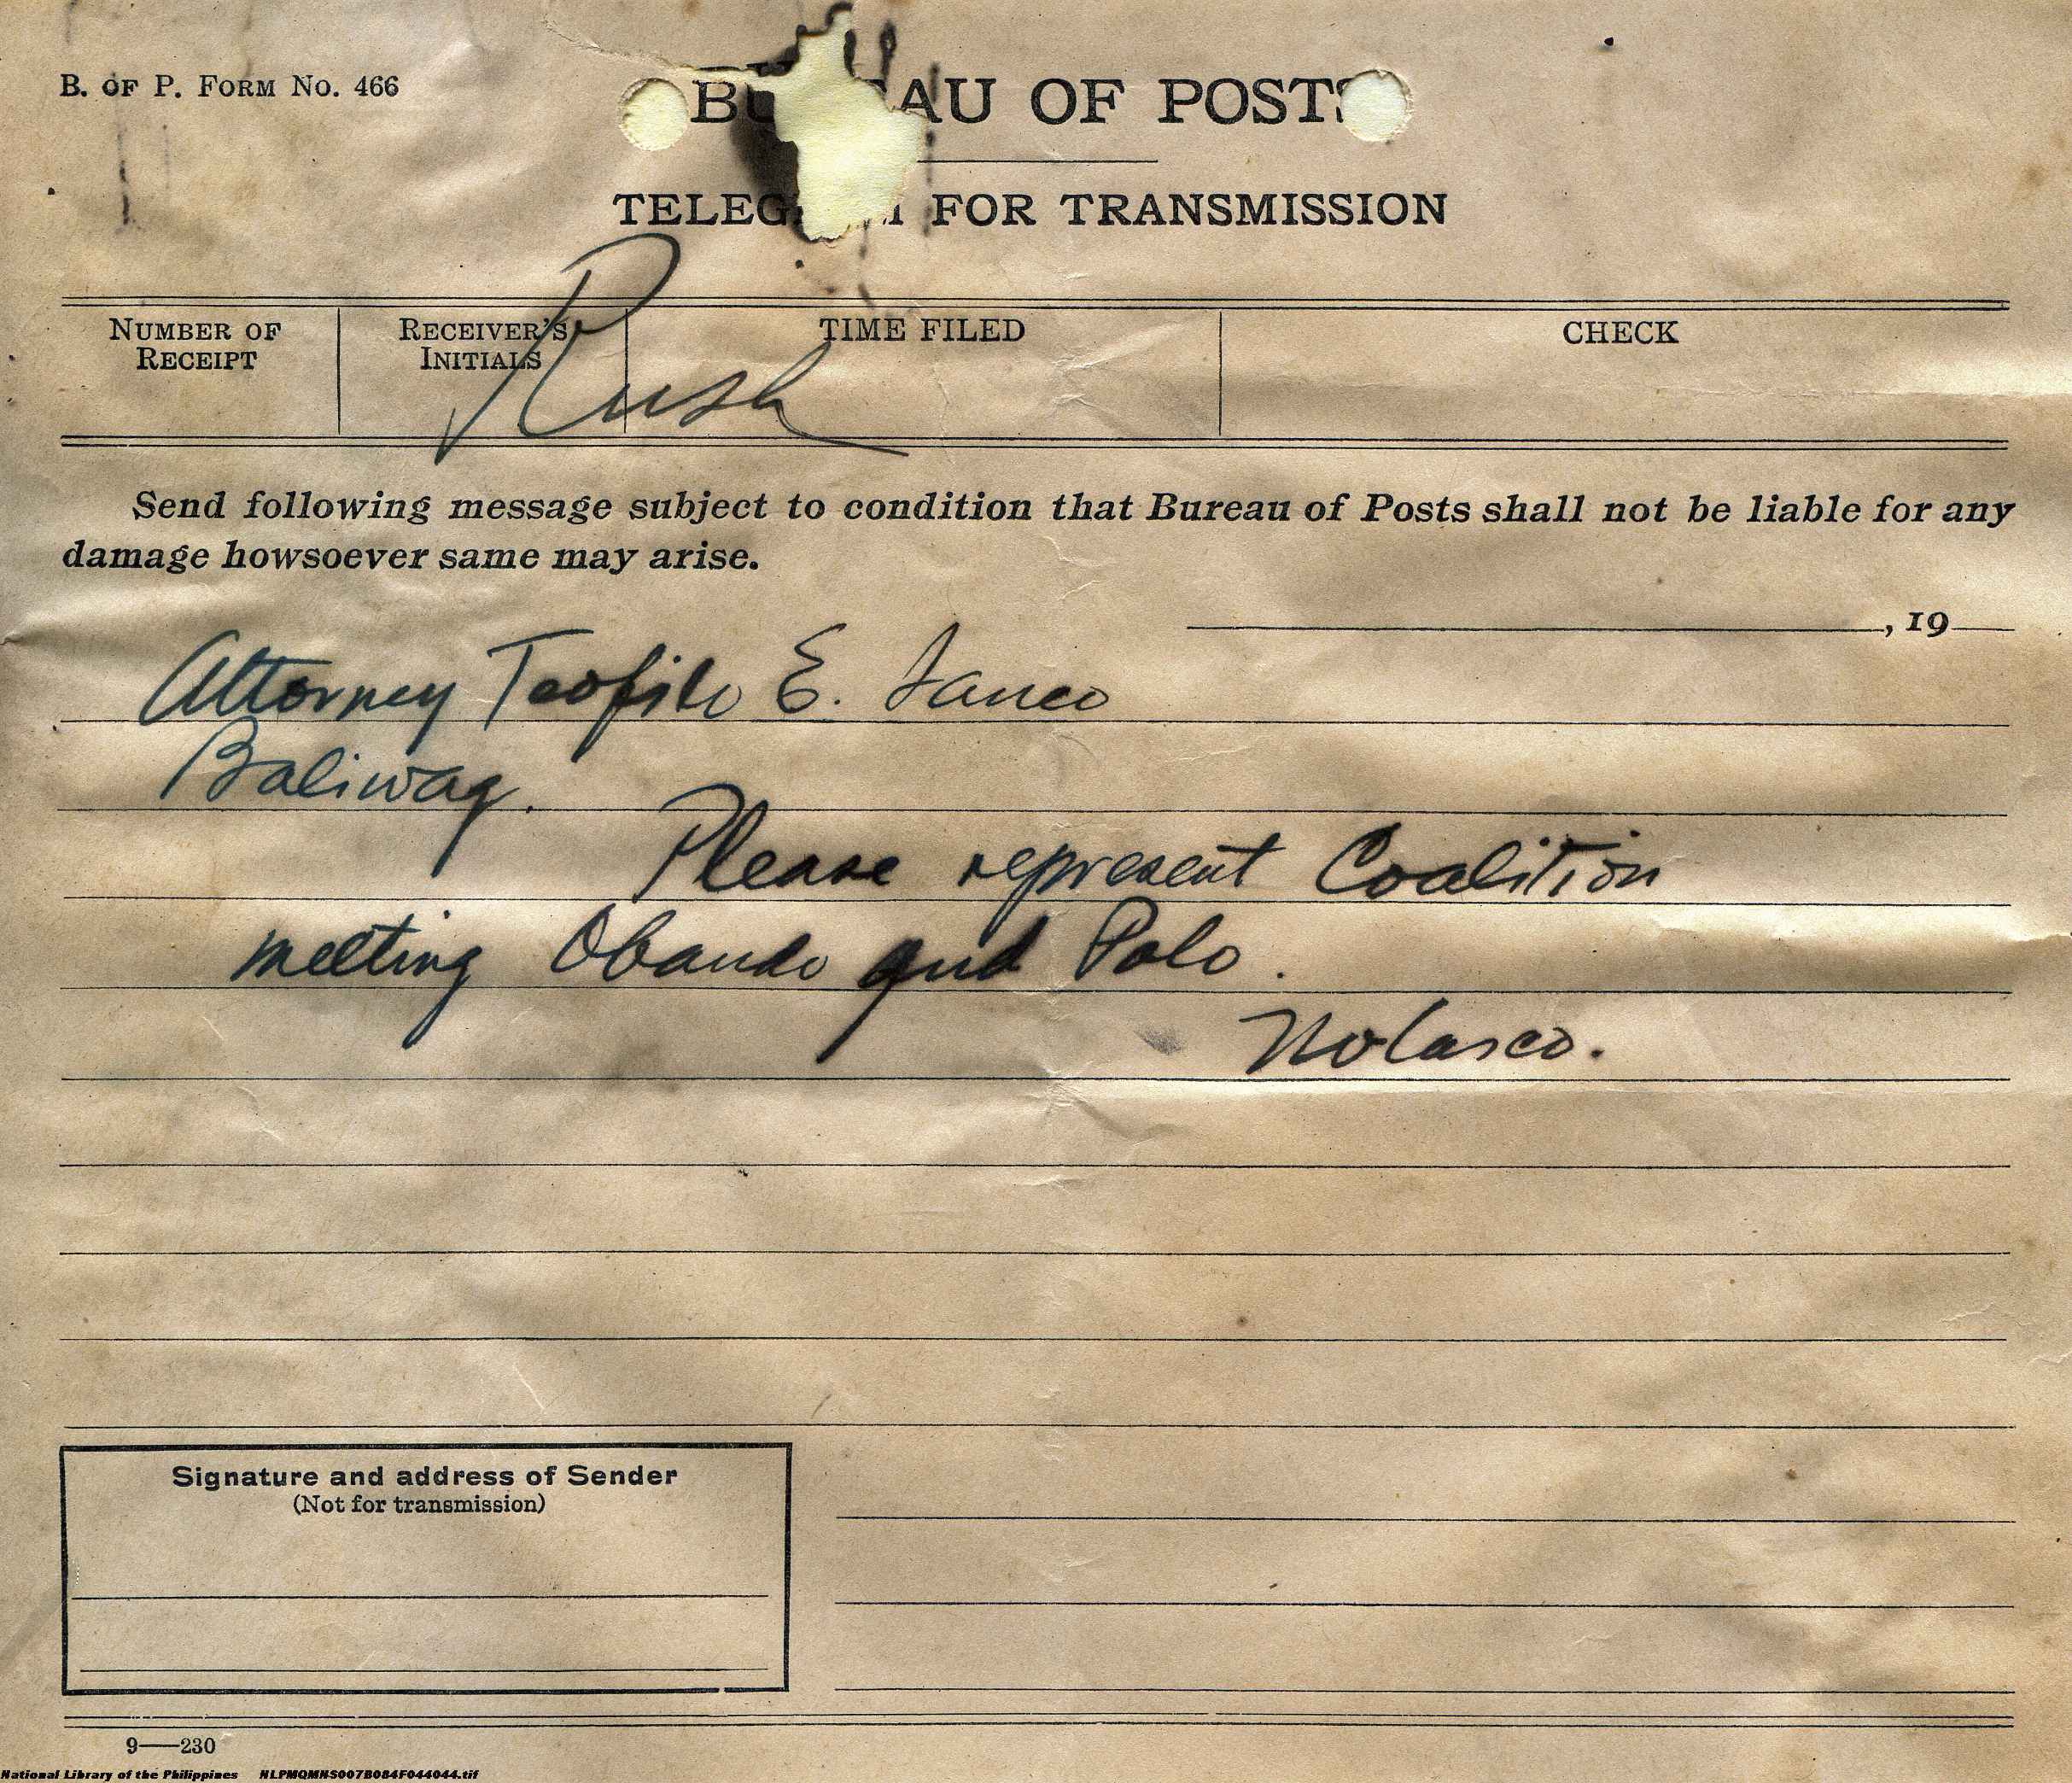 B. OF P. FORM No. 466
BU AU OF POSTS
TELEG M FOR TRANSMISSION
Rush
NUMBER OF RECEIPT
RECEIVER'S INITIALS
TIME FILED
CHECK
Send following message subject to condition that Bureau of Posts shall not be liable for any
damage howsoever same may arise.
, 19
Attorney Teofilo E.
Baliwag.
Please represent Coalition
meeting Obando and Polo.
Nolasco.
Signature and address of Sender
(Not for transmission)
9—230
National Library of the Philippines NLPMQMNS007B084F044044.tif